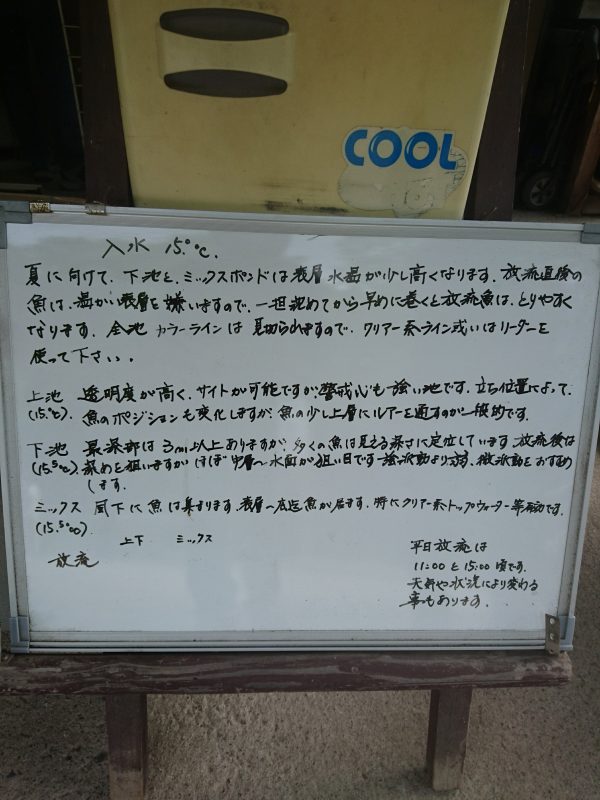 COOL
入水 15.0℃.
夏に向けて、下池と、ミックスポンドは表層水温が少し高くなります。放流直後の
魚は、温かい表層を嫌いますので、一旦沈めてから早めに巻くと放流魚は、とりやすく
なります。全池 カラーラインは見切られますので、クリアー系ライン或いはリーダーを
使って下さい。
上池 透明度が高く、サイトが可能ですが警戒心も強い池です。立ち位置によって、
(15.0℃). 魚のポジションも変化しますが、魚の少し上層にルアーを通すのが一般的です。
下池 最深部は3m以上ありますが、多くの魚は見える深さに定位しています。放流後は
(15.5℃) 深めを狙いますが ほぼ中層〜水面が狙い目です 強波動より弱、微波動をおすすめ
します。
ミックス 風下に魚は集まります。表層〜底迄魚が居ます。特にクリアー系トップウォーター等有効です。
(15.5℃).
上下 ミックス
放流
平日放流は
11:00と15:00頃です。
天気や状況により変わる
事もあります。